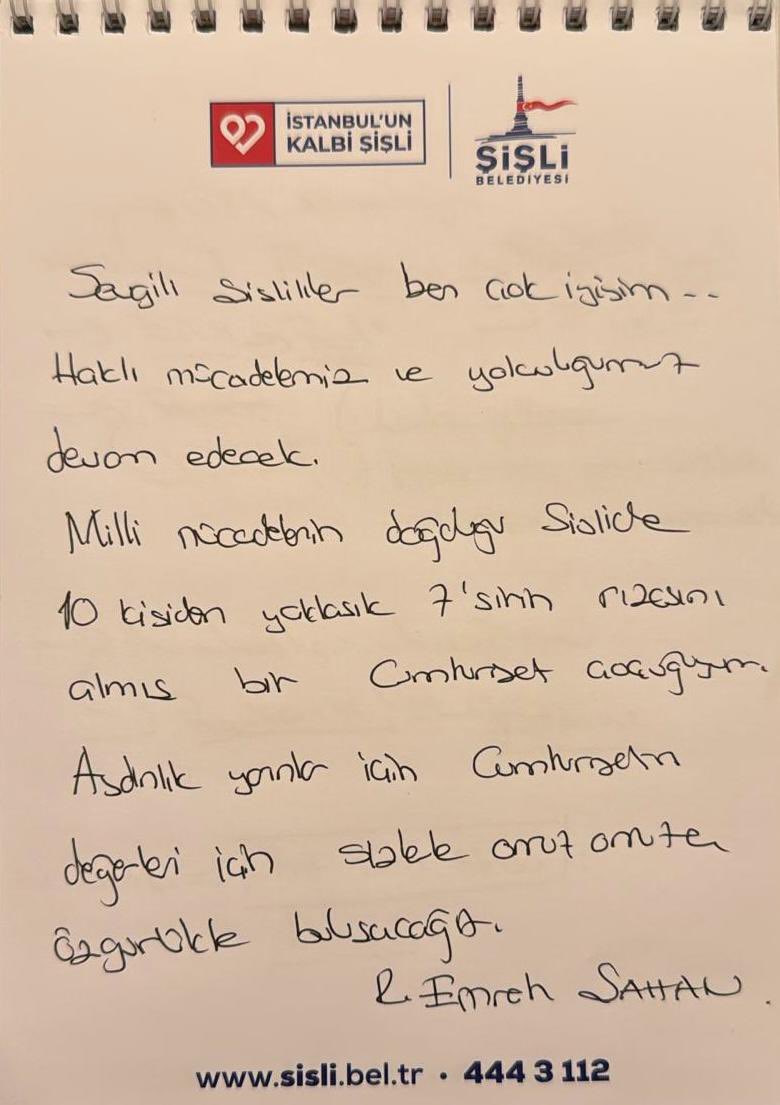 İSTANBUL'UN
KALBİ ŞİŞLİ
ŞİŞLİ
BELEDİYESİ
Sevgili Şişlililer ben çok iyiyim..
Haklı mücadelemiz ve yolculuğumuz
devam edecek.
Milli mücadelenin doğduğu Şişlide
10 kişiden yaklaşık 7'sinin rızasını
almış bir Cumhuriyet çocuğuyum.
Aydınlık yarınlar için Cumhuriyetin
değerleri için sizlerle omuz omuza
özgürlükle buluşacağız.
R. Emrah ŞAHAN.
www.sisli.bel.tr • 444 3 112